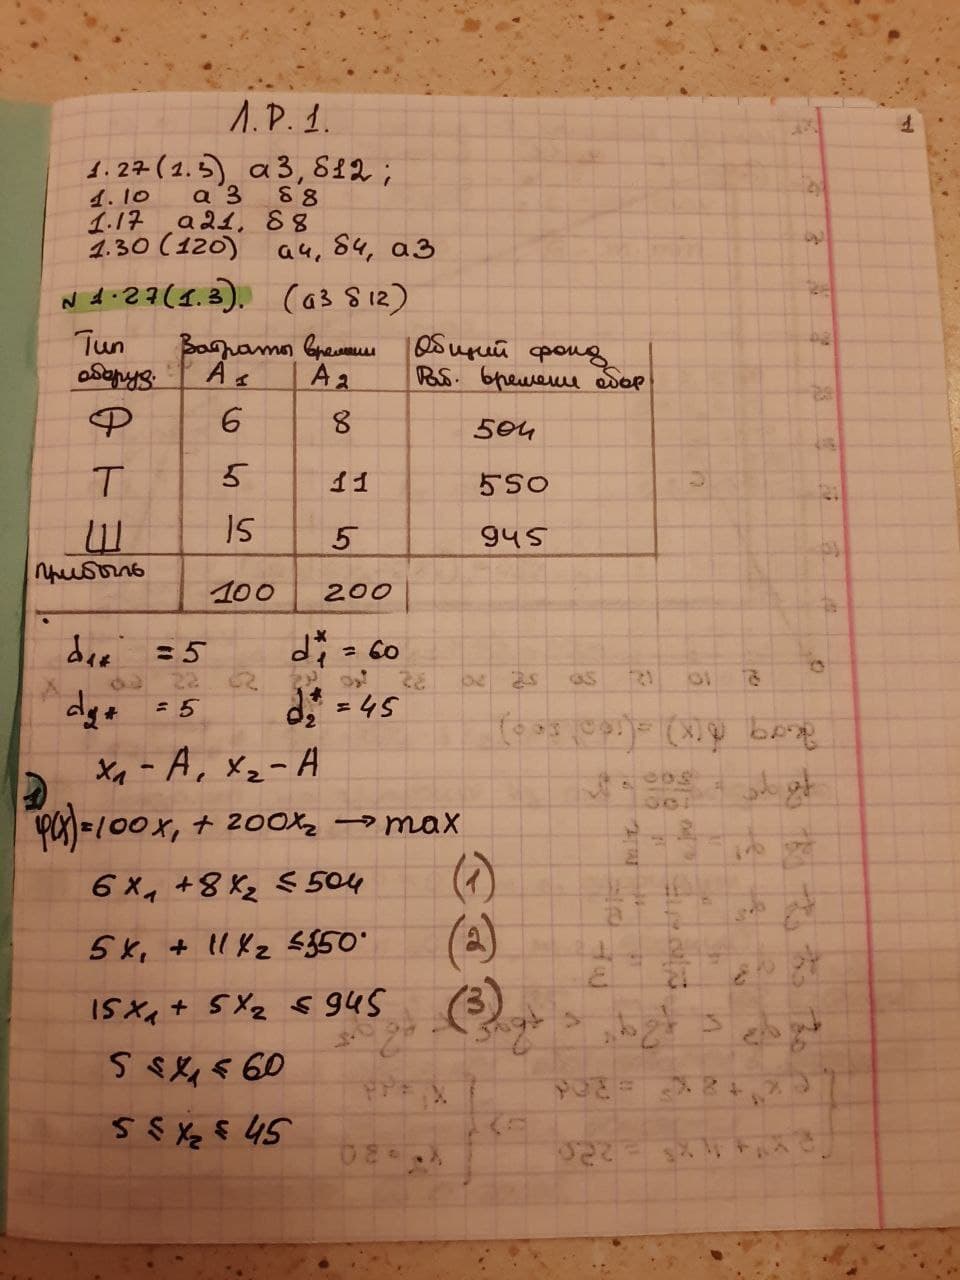 1
Л.Р.1.
1.27(1.3) а3, б12;
1.10 а3 б8
1.17 а21, б8
1.30(120) а4, б4, а3
N 1.27(1.3). (а3 б12)
Тип Затраты времени Общий фонд
оборуд. A1 A2 Раб. времени обор
Ф 6 8 504
Т 5 11 550
Ш 15 5 945
прибыль 100 200
d1* = 5 d1* = 60
d2* = 5 d2* = 45
x1 - A, x2 - A
1)
φ(x)=100x1 + 200x2 → max
6x1 + 8x2 ≤ 504 (1)
5x1 + 11x2 ≤ 550 (2)
15x1 + 5x2 ≤ 945 (3)
5 ≤ x1 ≤ 60
5 ≤ x2 ≤ 45